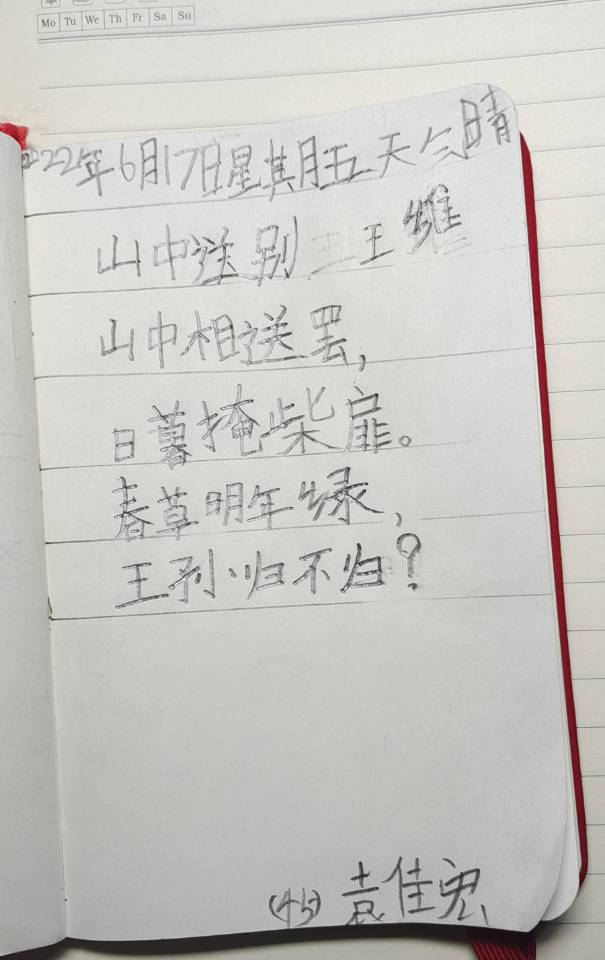 Mo Tu We Th Fr Sa Su
2022年6月17日星期五天气晴
山中送别 王维
山中相送罢,
日暮掩柴扉。
春草明年绿,
王孙归不归?
(45) 袁佳